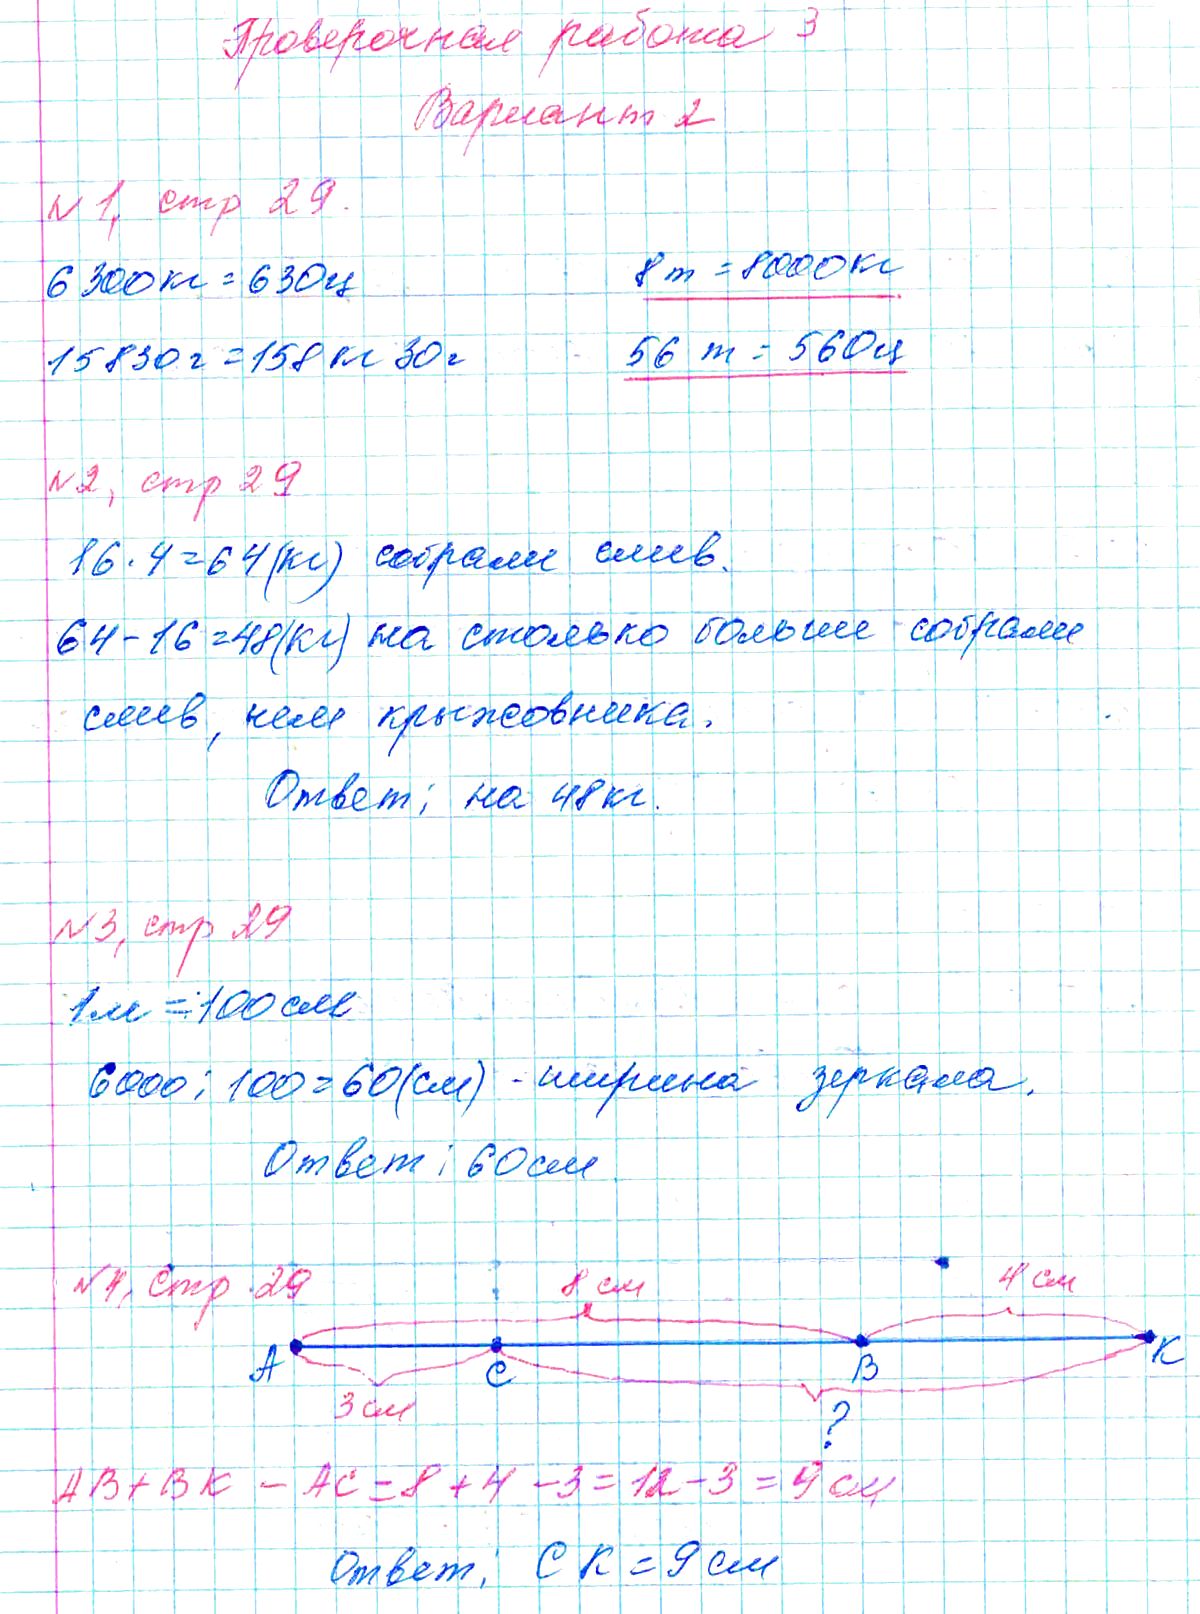 Проверочная работа 3
Вариант 2
№1, стр 29.
6300кг = 630ц
8т = 8000кг
15830г = 158кг 30г
56 т = 560ц
№2, стр 29
16 · 4 = 64(кг) собрали слив.
64 - 16 = 48(кг) на столько больше собрали
слив, чем крыжовника.
Ответ: на 48кг.
№3, стр 29
1м = 100см
6000 : 100 = 60(см) - ширина зеркала.
Ответ: 60см
№4, стр 29
8 см
4 см
А
С
В
К
3 см
?
АВ + ВК - АС = 8 + 4 - 3 = 12 - 3 = 9 см
Ответ: СК = 9 см